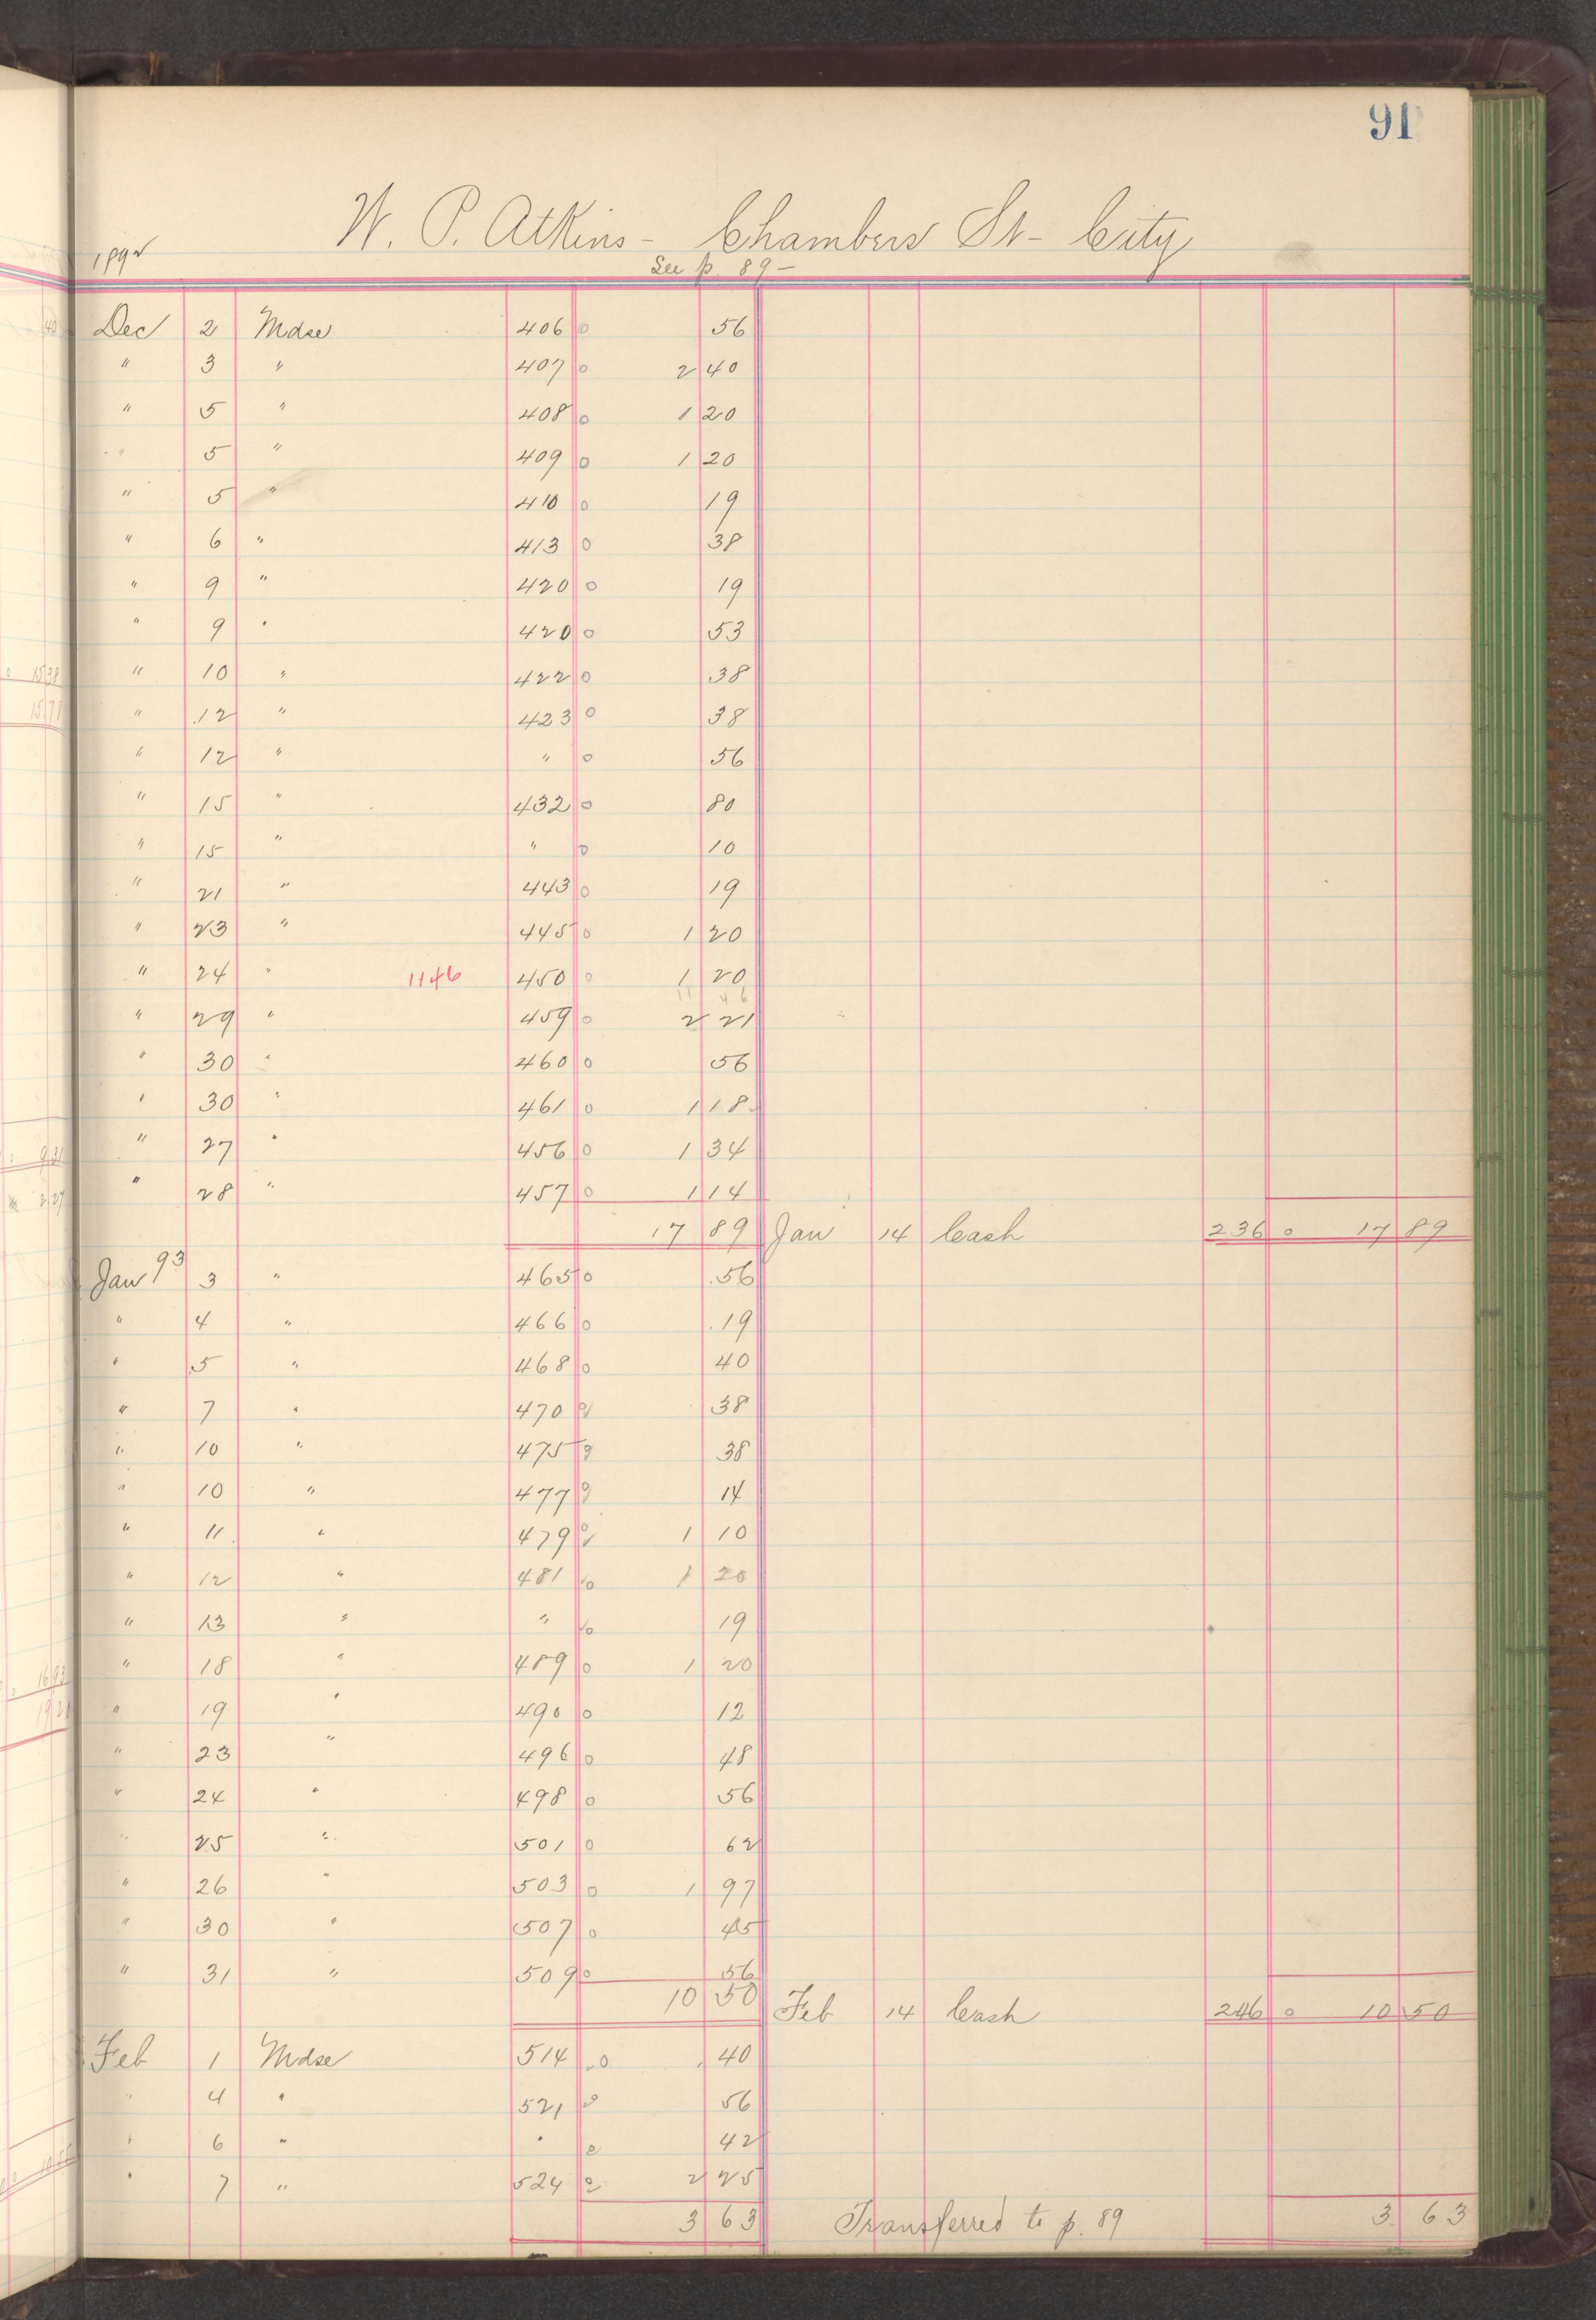 91
W. P. Atkins - Chambers St - City
1892
See p. 89 -
Dec 2 Mdse 406 o 56
" 3 " 407 o 2 40
" 5 " 408 o 1 20
" 5 " 409 o 1 20
" 5 " 410 o 19
" 6 " 413 o 38
" 9 " 420 o 19
" 9 " 420 o 53
" 10 " 422 o 38
" 12 " 423 o 38
" 12 " " o 56
" 15 " 432 o 80
" 15 " " o 10
" 21 " 443 o 19
" 23 " 445 o 1 20
" 24 " 1146 450 o 1 20
11 46
" 29 " 459 o 2 21
" 30 " 460 o 56
" 30 " 461 o 1 18
" 27 " 456 o 1 34
" 28 " 457 o 1 14
17 89 Jan 14 Cash 236 o 17 89
Jan 93 3 " 465 o 56
" 4 " 466 o 19
" 5 " 468 o 40
" 7 " 470 o 38
" 10 " 475 o 38
" 10 " 477 o 14
" 11 " 479 o 1 10
" 12 " 481 o 1 20
" 13 " " o 19
" 18 " 489 o 1 20
" 19 " 490 o 12
" 23 " 496 o 48
" 24 " 498 o 56
" 25 " 501 o 62
" 26 " 503 o 1 97
" 30 " 507 o 45
" 31 " 509 o 56
10 50 Feb 14 Cash 246 o 10 50
Feb 1 Mdse 514 o 40
" 4 " 521 o 56
" 6 " " o 42
" 7 " 524 o 2 25
3 63 Transferred to p. 89 3 63